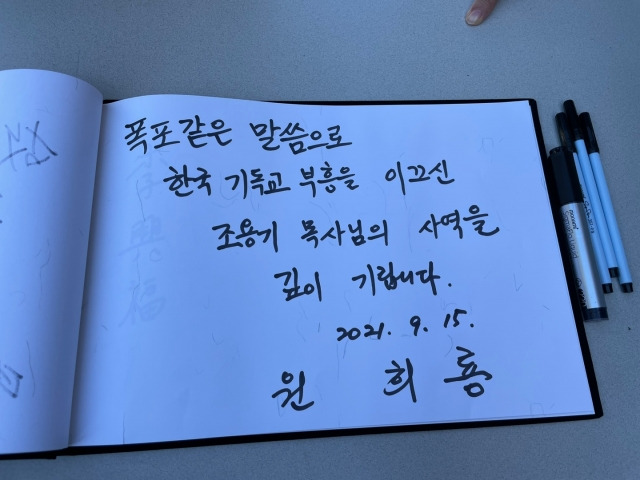 폭포같은 말씀으로
한국 기독교 부흥을 이끄신
조용기 목사님의 사역을
깊이 기립니다.
2021. 9. 15.
원 희 룡